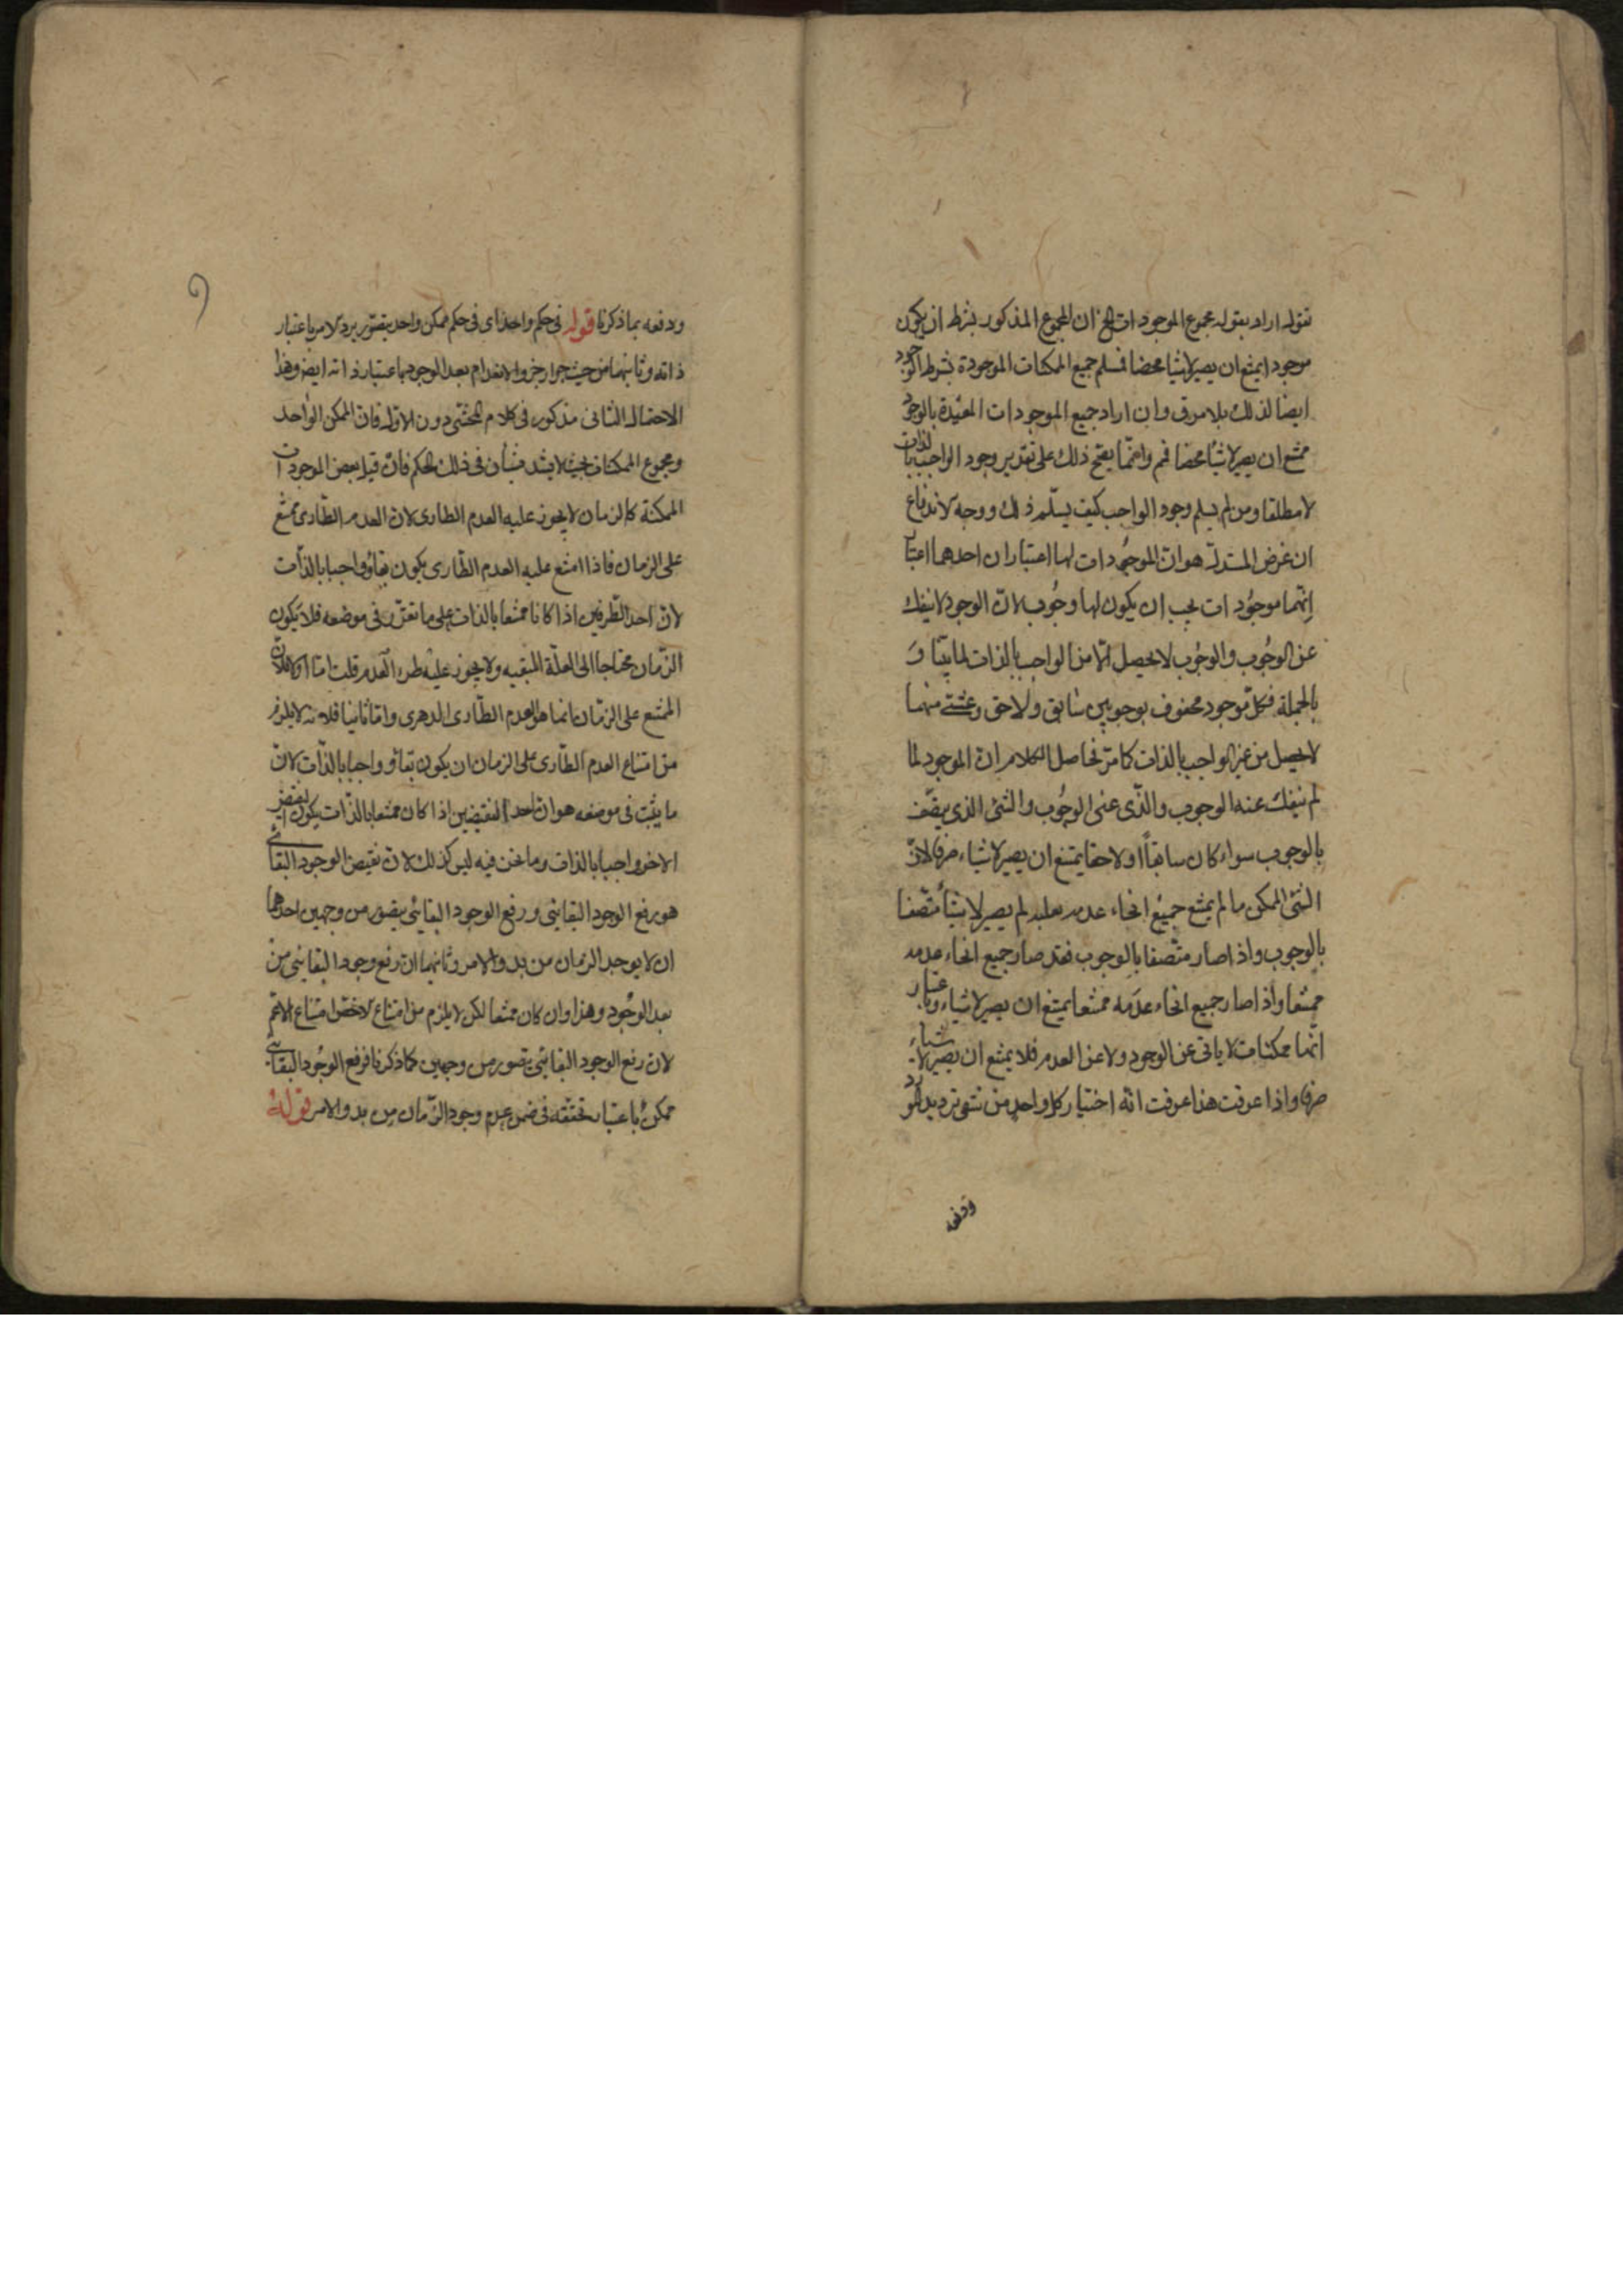 نقول اراد بقوله مجموع الموجودات الخ ان المجموع المذكور بشرط ان يكون
موجودا يمتنع ان يصير لا شيئا محضا فسلم جميع الممكنات الموجودة بشرط الوجود
ايضا لذلك بلا فرق وان اراد جميع الموجودات المقيدة بالوجود
ممتنع ان يصير لا شيئا محضا فم وانما يصح ذلك على تقدير وجود الواجب بالذات
لا مطلقا ومن لم يسلم وجود الواجب كيف يسلم ذلك ووجه الاندفاع
ان غرض المستدل هو ان الموجودات لها اعتباران احدهما اعتبار
انها موجودات يجب ان يكون لها وجوب لان الوجود لا ينفك
عن الوجوب والوجوب لا يحصل الا من الواجب بالذات لما بينا و
بالجملة فكل موجود محفوف بوجوبين سابق ولاحق وشئ منهما
لا يحصل من غير الواجب بالذات كما مر فحاصل الكلام ان الموجود لما
لم ينفك عنه الوجوب والذى عنى الوجوب والشئ الذى يتصف
بالوجوب سواء كان سابقا او لاحقا يمتنع ان يصير لا شياء صرفا لان
الشئ الممكن ما لم يمتنع جميع انحاء عدمه لم يصير لا شيئا متصفا
بالوجوب واذا صار متصفا بالوجوب فقد صار جميع انحاء عدمه
ممتنعا واذا صار جميع انحاء عدمه ممتنعا يمتنع ان يصير لا شياء وباعتبار
انها ممكنات لا يابى عن الوجود ولا عن العدم فلا يمتنع ان يصير لا شياء
صرفا واذا عرفت هذا عرفت انه اختيار كل واحد من شقى ترديد المورد
ودفعه
ودفعه بما ذكرنا قوله فى حكم واحد اى فى حكم ممكن واحد يتصور يرد الامر باعتبار
ذاته وثانيهما من حيث جواز الانعدام بعد الوجود باعتبار ذاته ايضا وهذا
الاحتمال الثانى مذكور فى كلام المحشى دون الاول فان الممكن الواحد
ومجموع الممكنات بحيث لا يشذ فى ذلك الحكم فان قيل بعض الموجودات
الممكنة كالزمان لا يجوز عليه العدم الطارى لان العدم الطارى ممتنع
على الزمان فاذا امتنع عليه العدم الطارى يكون بقاؤه واجبا بالذات
لان احد الطرفين اذا كان ممتنعا بالذات على ما تقرر فى موضعه فلا يكون
الزمان محتاجا الى العلة المبقيه ولا يجوز عليه طرء العدم قلت اما اولا فلان
الممتنع على الزمان انما هو العدم الطارى الدهرى واما ثانيا فلانه لا يلزم
من امتناع العدم الطارى على الزمان ان يكون بقاؤه واجبا بالذات لان
ما يثبت فى موضعه هو ان احد النقيضين اذا كان ممتنعا بالذات يكون النقيض
الاخر واجبا بالذات وما نحن فيه ليس كذلك لان نقيض الوجود البقائى
هو رفع الوجود البقائى ورفع الوجود البقائى يتصور من وجهين احدهما
ان لا يوجد الزمان من بدو الامر وثانيهما ان رفع وجود البقائى من
بعد الوجود وهذا وان كان ممتنعا لكن لا يلزم من امتناع الاخص امتناع الاعم
لان رفع الوجود البقائى يتصور من وجهين كما ذكرنا فرفع الوجود البقائى
ممكن باعتبار تحققه فى ضمن عدم وجود الزمان من بدو الامر قوله